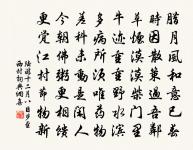 臘月風和意已春
時因散策過吾鄰
草煙漠漠柴門裏
牛迹重重野水濱
多病所須唯藥物
差科未動是閒人
今朝佛粥更相饋
更覺江村節物新
陸游十二月八日步至
西村詞典網集